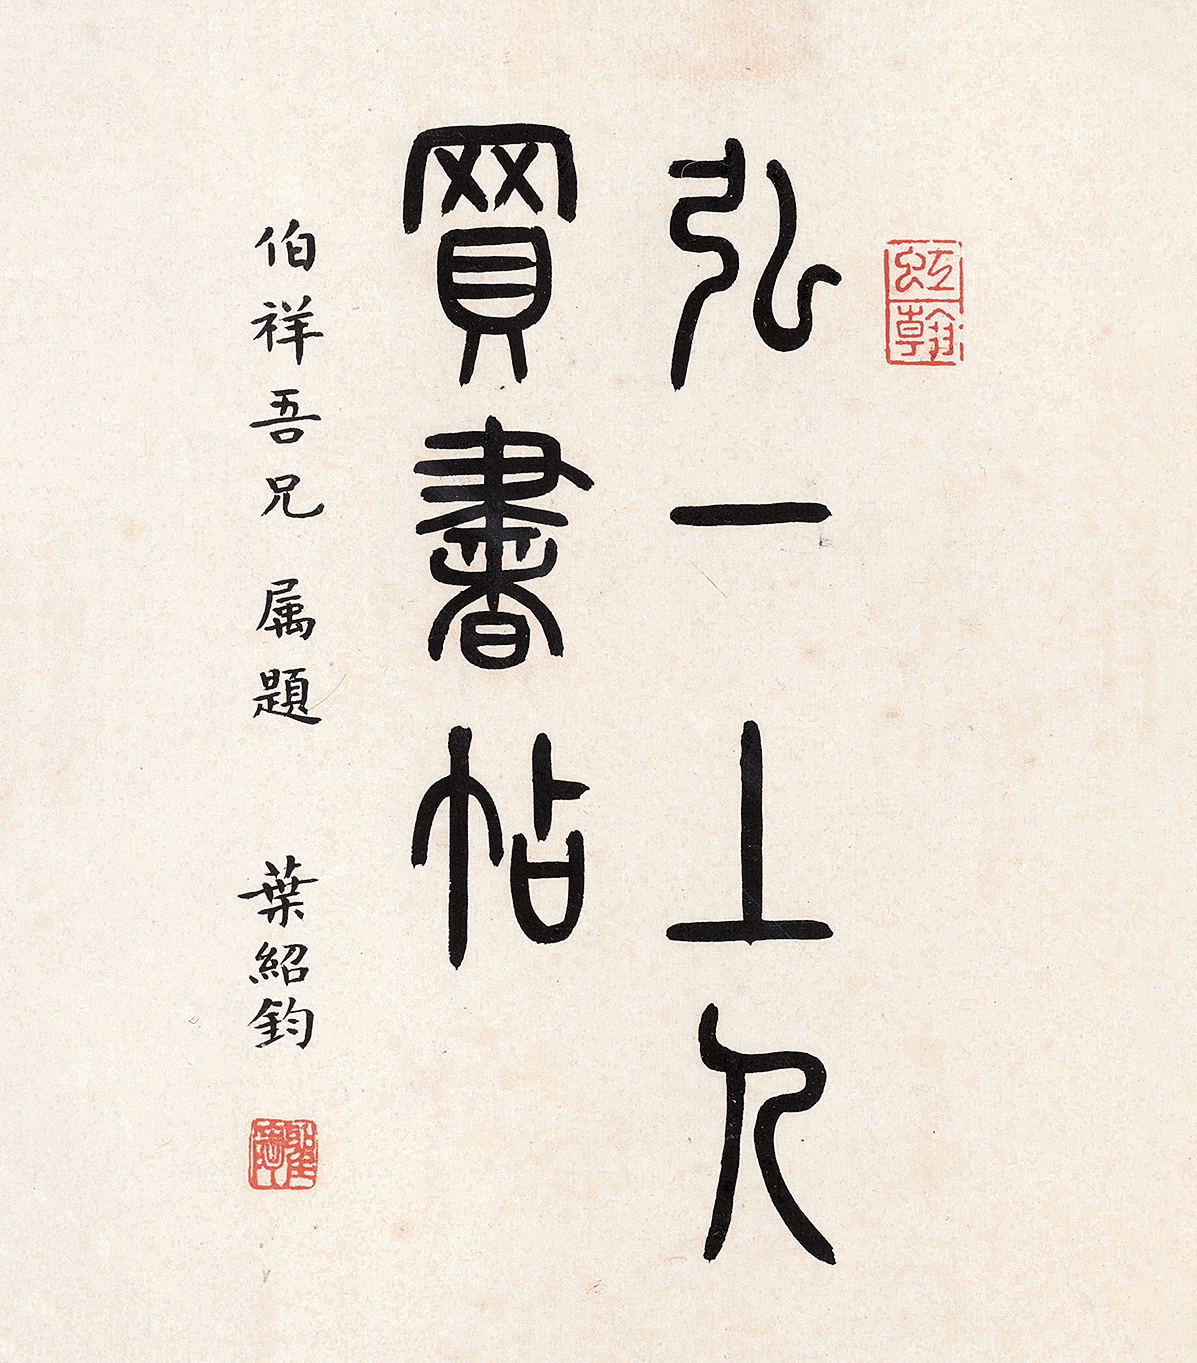 虹翰
弘一上人
買書帖
伯祥吾兄 属題 葉紹鈞